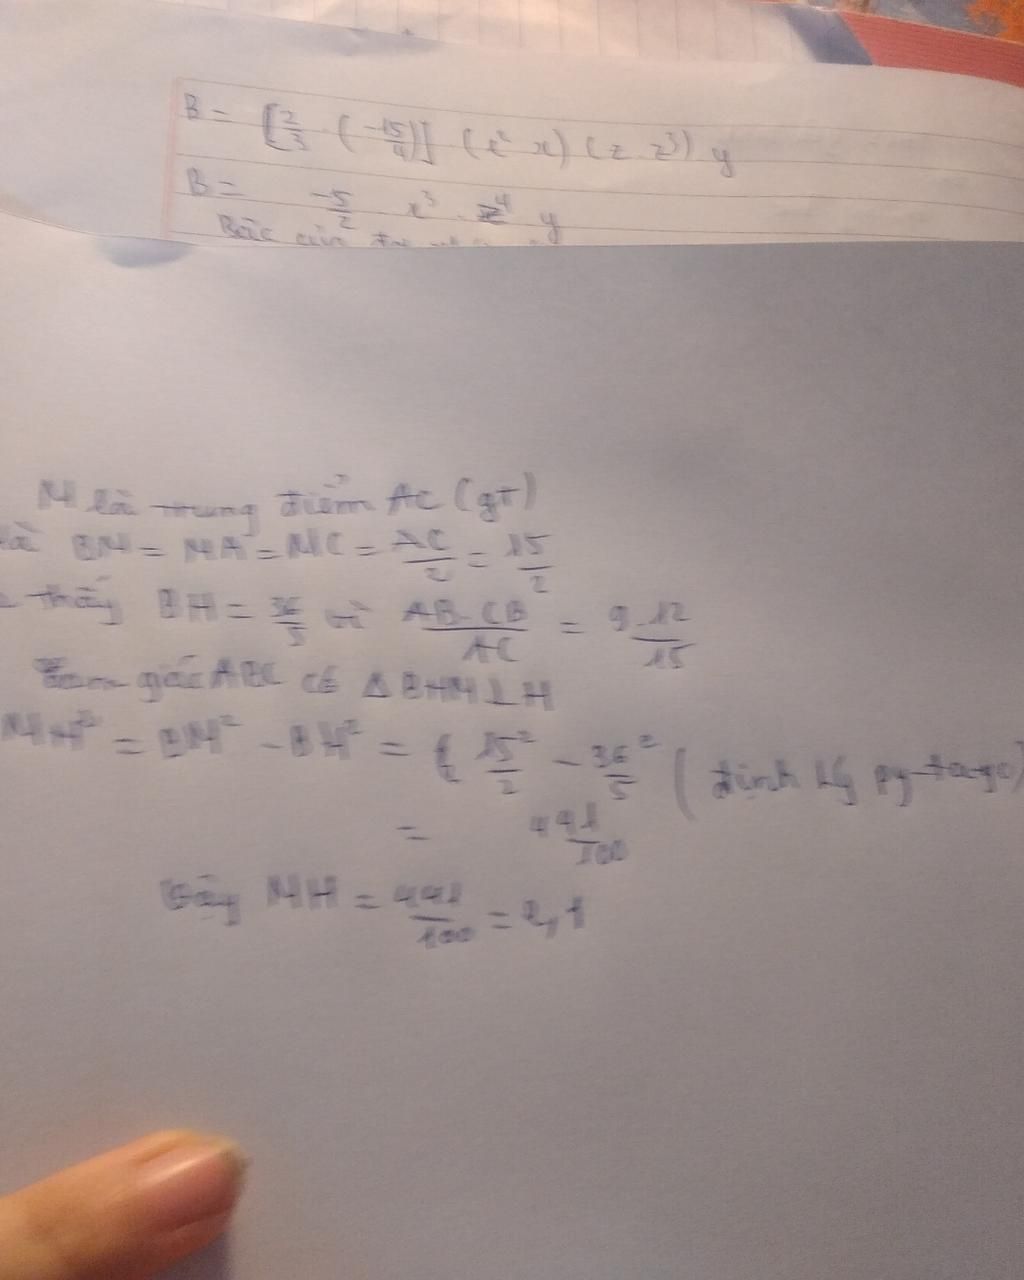 B = [2/3 . (-15/4)] (x² x) (z . z³) y
B = -5/2 x³ . z⁴ y
Bậc của
M là trung điểm AC (gt)
BM = MA = MC = AC/2 = 15/2
thấy BH = 36/5 vì AB.CB/AC = 9.12/15
giác ABC có Δ BHM ⊥ H
MH² = BM² - BH² = 15/2² - 36/5² (định lý py-ta-go)
= 441/100
Vậy MH = 441/100 = 2,1